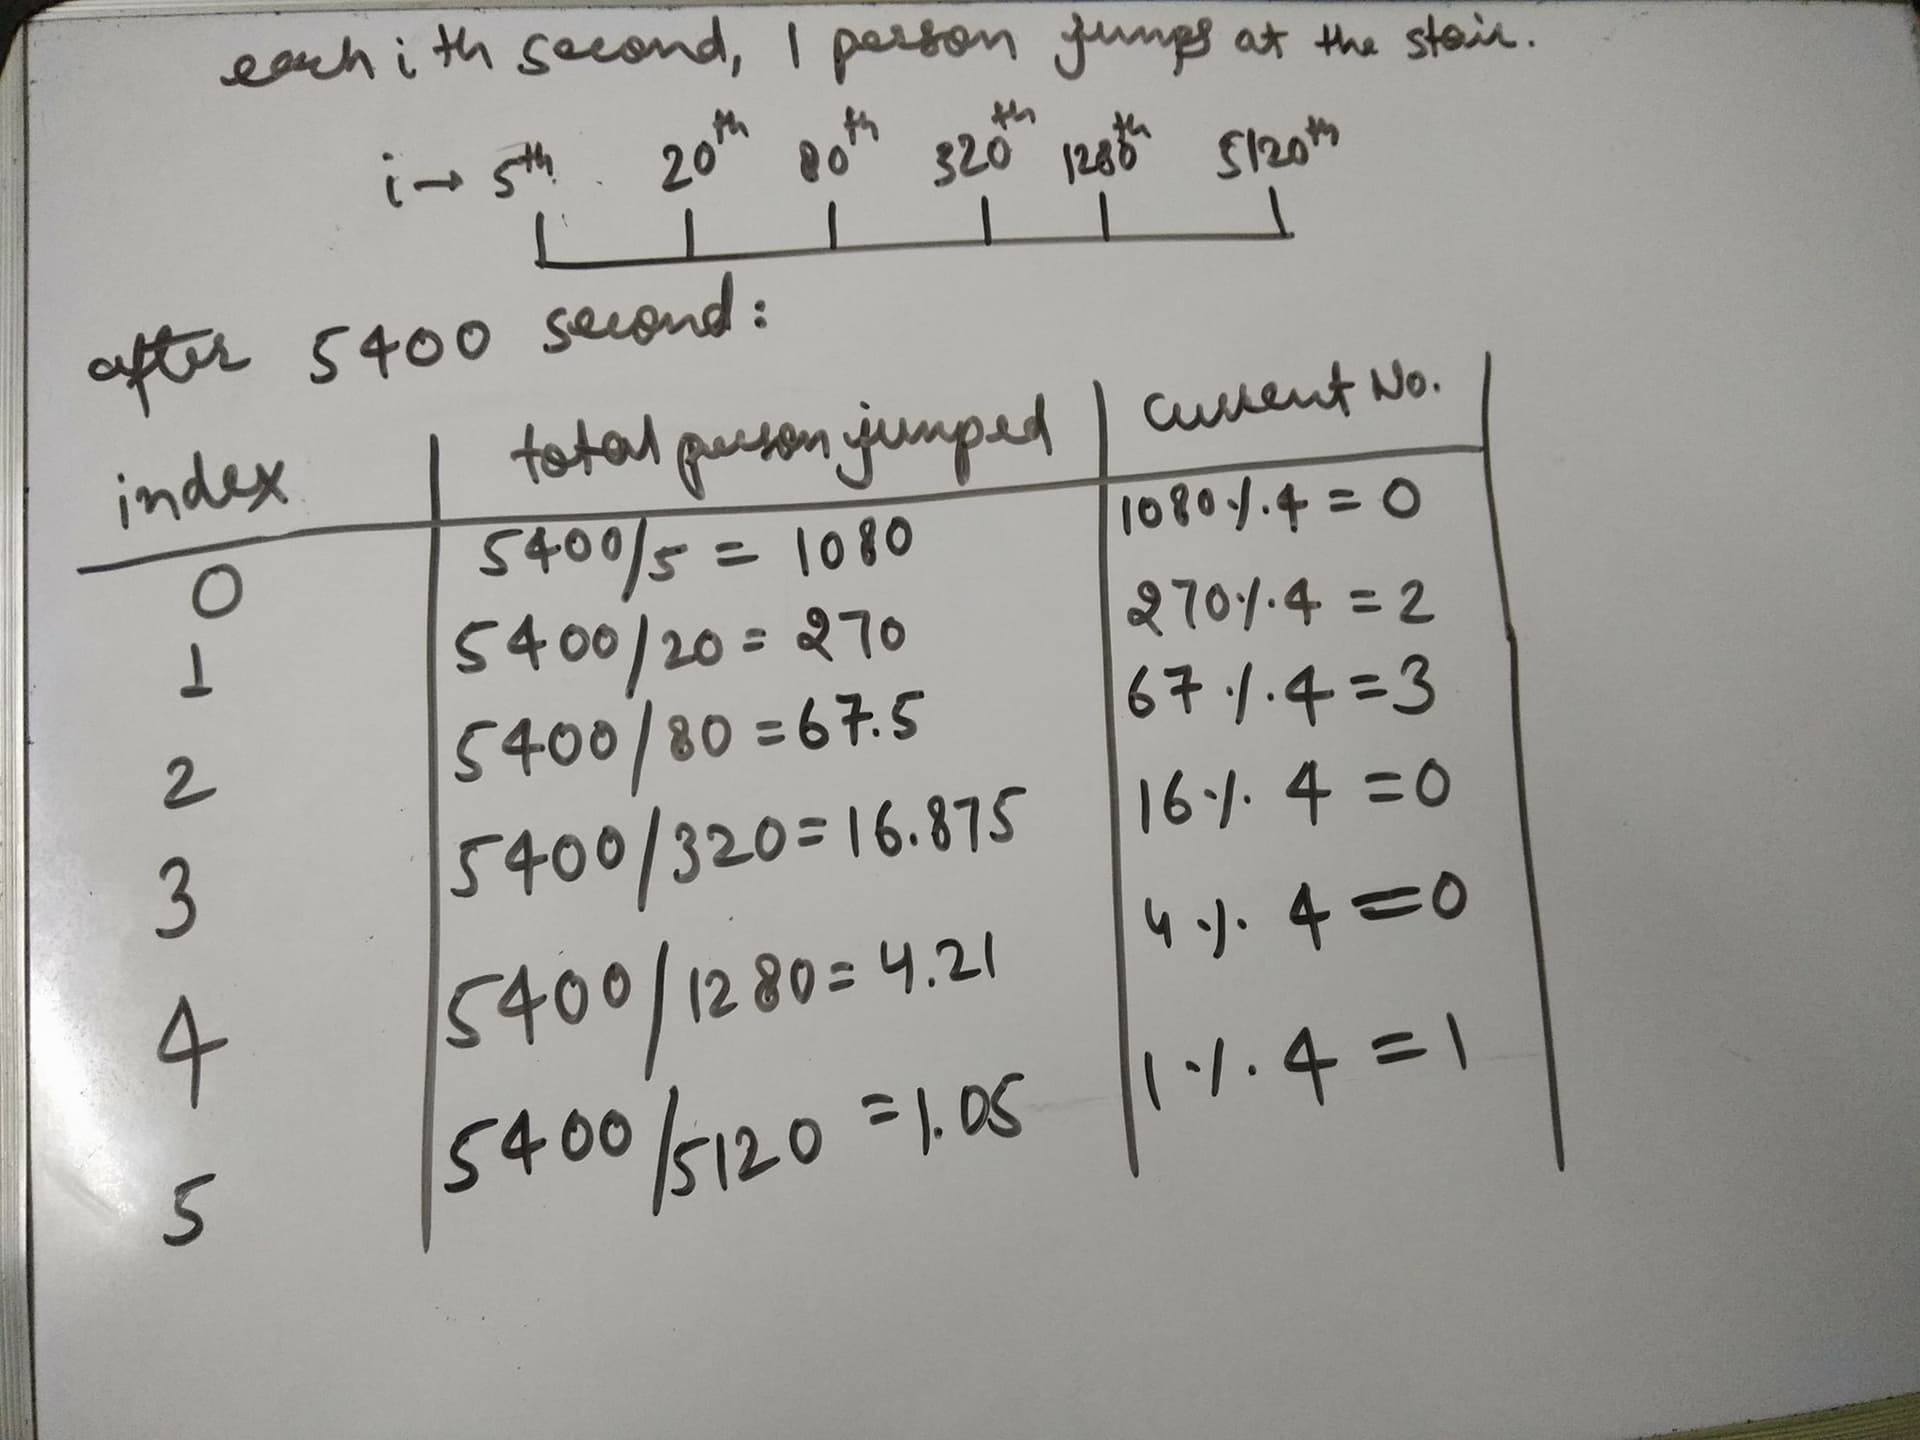 each i th second, 1 person jumps at the stair.
i → 5th 20th 80th 320th 1280th 5120th
after 5400 second:
index total person jumped current No.
0 5400/5 = 1080 1080 % 4 = 0
1 5400/20 = 270 270 % 4 = 2
2 5400/80 = 67.5 67 % 4 = 3
3 5400/320 = 16.875 16 % 4 = 0
4 5400/1280 = 4.21 4 % 4 = 0
5 5400/5120 = 1.05 1 % 4 = 1